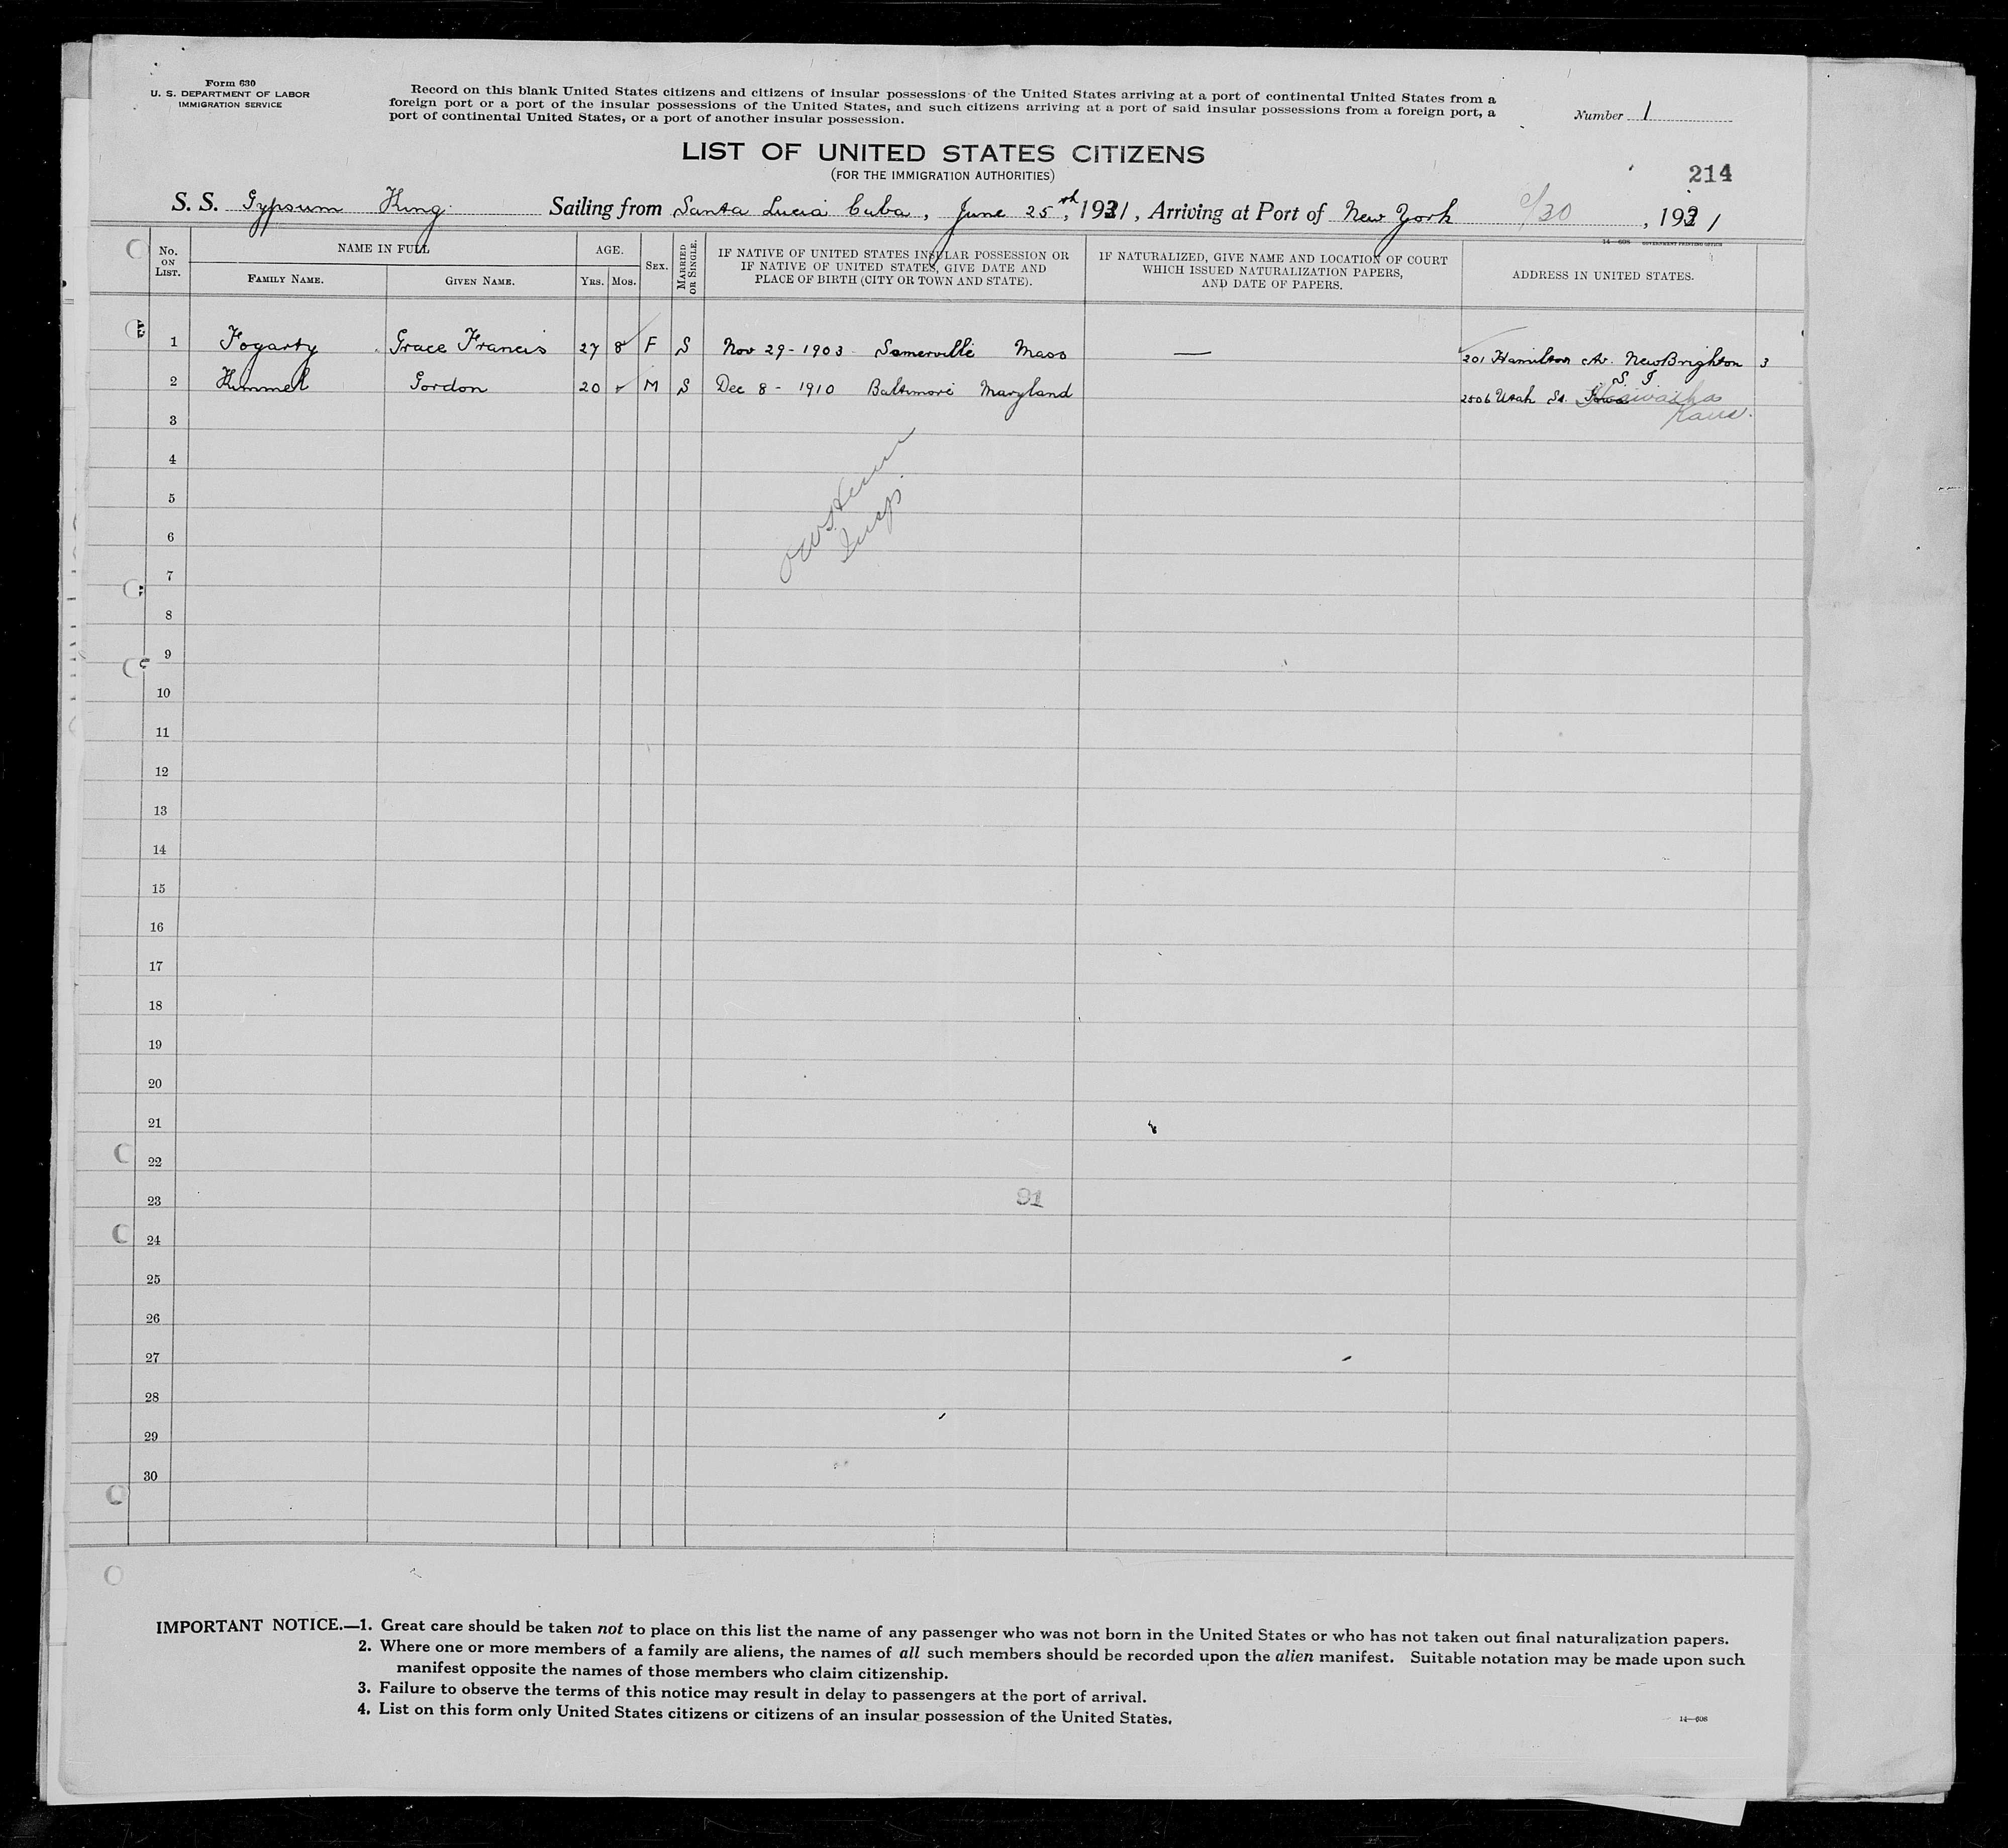 Form 630
U. S. DEPARTMENT OF LABOR
IMMIGRATION SERVICE
Record on this blank United States citizens and citizens of insular possessions of the United States arriving at a port of continental United States from a
foreign port or a port of the insular possessions of the United States, and such citizens arriving at a port of said insular possessions from a foreign port, a
port of continental United States, or a port of another insular possession.
Number 1
LIST OF UNITED STATES CITIZENS
(FOR THE IMMIGRATION AUTHORITIES)
214
S. S. Gypsum King Sailing from Santa Lucia Cuba, June 25th, 1931, Arriving at Port of New York 6/30, 1931
14—608 GOVERNMENT PRINTING OFFICE
No. ON LIST.
NAME IN FULL
FAMILY NAME.
GIVEN NAME.
AGE.
YRS.
MOS.
SEX.
MARRIED OR SINGLE.
IF NATIVE OF UNITED STATES INSULAR POSSESSION OR
IF NATIVE OF UNITED STATES, GIVE DATE AND
PLACE OF BIRTH (CITY OR TOWN AND STATE).
IF NATURALIZED, GIVE NAME AND LOCATION OF COURT
WHICH ISSUED NATURALIZATION PAPERS,
AND DATE OF PAPERS.
ADDRESS IN UNITED STATES.
1 Fogarty Grace Francis 27 8 F S Nov 29 - 1903 Somerville Mass — 201 Hamilton Av. New Brighton 3
S. I
2 Kimmel Gordon 20 M S Dec 8 - 1910 Baltimore Maryland 2506 Utah St.
Kans.
3
4
5
Insp.
6
7
8
9
10
11
12
13
14
15
16
17
18
19
20
21
22
23
91
24
25
26
27
28
29
30
IMPORTANT NOTICE.—1. Great care should be taken not to place on this list the name of any passenger who was not born in the United States or who has not taken out final naturalization papers.
2. Where one or more members of a family are aliens, the names of all such members should be recorded upon the alien manifest. Suitable notation may be made upon such
manifest opposite the names of those members who claim citizenship.
3. Failure to observe the terms of this notice may result in delay to passengers at the port of arrival.
4. List on this form only United States citizens or citizens of an insular possession of the United States.
14—608